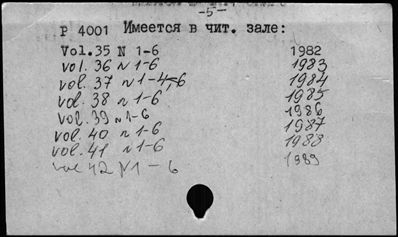 -5-
Р 4001 Имеется в чит. зале:
Vol.35 N 1-6 1982
vol. 36 N 1-6 1983
vol. 37 N 1-4,6 1984
vol. 38 N 1-6 1985
vol. 39 N 1-6 1986
vol. 40 N 1-6 1987
vol. 41 N 1-6 1988
vol 42 N 1-6 1989